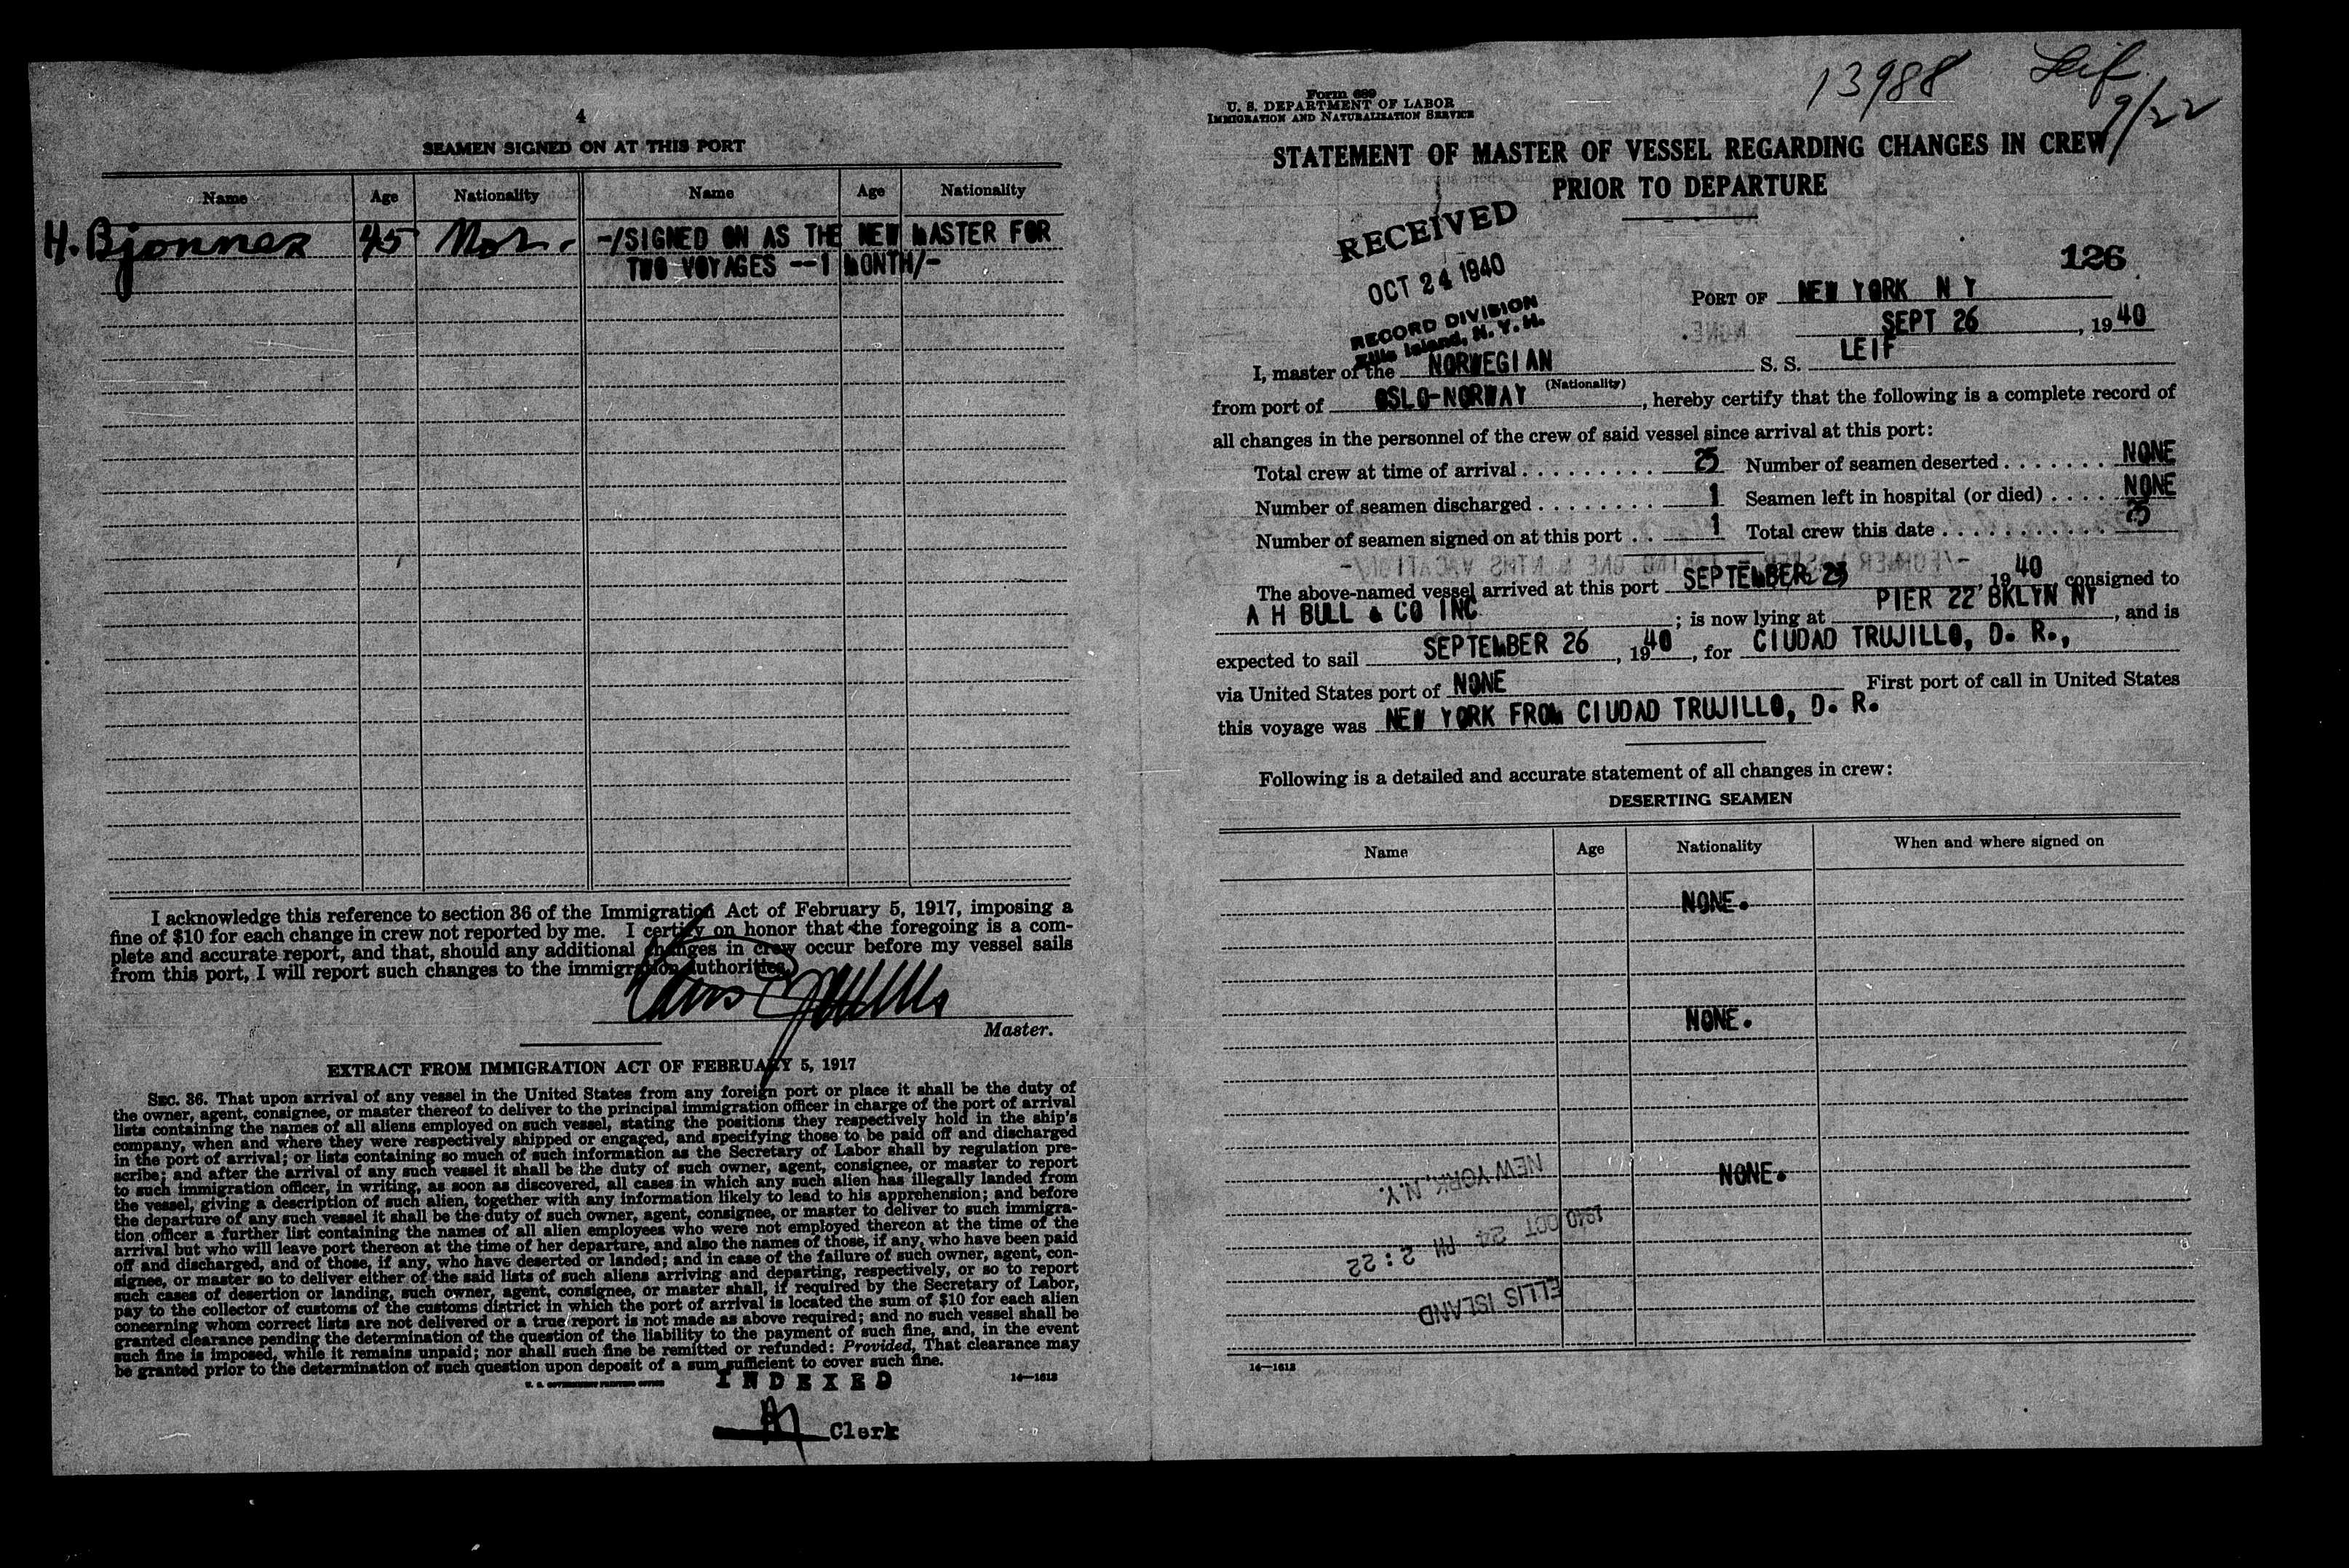 4
SEAMEN SIGNED ON AT THIS PORT
Name Age Nationality Name Age Nationality
H. Bjonnes 45 Nor. -/SIGNED ON AS THE NEW MASTER FOR
TWO VOYAGES --1 MONTH/-
I acknowledge this reference to section 36 of the Immigration Act of February 5, 1917, imposing a
fine of $10 for each change in crew not reported by me. I certify on honor that the foregoing is a com-
plete and accurate report, and that, should any additional changes in crew occur before my vessel sails
from this port, I will report such changes to the immigration authorities.
Master.
EXTRACT FROM IMMIGRATION ACT OF FEBRUARY 5, 1917
SEC. 36. That upon arrival of any vessel in the United States from any foreign port or place it shall be the duty of
the owner, agent, consignee, or master thereof to deliver to the principal immigration officer in charge of the port of arrival
lists containing the names of all aliens employed on such vessel, stating the positions they respectively hold in the ship's
company, when and where they were respectively shipped or engaged, and specifying those to be paid off and discharged
in the port of arrival; or lists containing so much of such information as the Secretary of Labor shall by regulation pre-
scribe; and after the arrival of any such vessel it shall be the duty of such owner, agent, consignee, or master to report
to such immigration officer, in writing, as soon as discovered, all cases in which any such alien has illegally landed from
the vessel, giving a description of such alien, together with any information likely to lead to his apprehension; and before
the departure of any such vessel it shall be the duty of such owner, agent, consignee, or master to deliver to such immigra-
tion officer a further list containing the names of all alien employees who were not employed thereon at the time of the
arrival but who will leave port thereon at the time of her departure, and also the names of those, if any, who have been paid
off and discharged, and of those, if any, who have deserted or landed; and in case of the failure of such owner, agent, con-
signee, or master so to deliver either of the said lists of such aliens arriving and departing, respectively, or so to report
such cases of desertion or landing, such owner, agent, consignee, or master shall, if required by the Secretary of Labor,
pay to the collector of customs of the customs district in which the port of arrival is located the sum of $10 for each alien
concerning whom correct lists are not delivered or a true report is not made as above required; and no such vessel shall be
granted clearance pending the determination of the question of the liability to the payment of such fine, and, in the event
such fine is imposed, while it remains unpaid; nor shall such fine be remitted or refunded: Provided, That clearance may
be granted prior to the determination of such question upon deposit of a sum sufficient to cover such fine.
U. S. GOVERNMENT PRINTING OFFICE 14—1613
INDEXED
Clerk
13988 Leif
9/22
Form 689
U. S. DEPARTMENT OF LABOR
IMMIGRATION AND NATURALIZATION SERVICE
STATEMENT OF MASTER OF VESSEL REGARDING CHANGES IN CREW
PRIOR TO DEPARTURE
RECEIVED
OCT 24 1940
RECORD DIVISION
Ellis Island, N. Y. H.
126
PORT OF NEW YORK N Y
SEPT 26, 1940
I, master of the NORWEGIAN S. S. LEIF
(Nationality)
from port of OSLO-NORWAY, hereby certify that the following is a complete record of
all changes in the personnel of the crew of said vessel since arrival at this port:
Total crew at time of arrival . . . . . . . . . 25 Number of seamen deserted . . . . . . . NONE
Number of seamen discharged . . . . . . . . 1 Seamen left in hospital (or died) . . . . NONE
Number of seamen signed on at this port . . 1 Total crew this date . . . . . . . . . . . 25
The above-named vessel arrived at this port SEPTEMBER 23, 1940, consigned to
A H BULL & CO INC; is now lying at PIER 22 BKLYN NY, and is
expected to sail SEPTEMBER 26, 1940, for CIUDAD TRUJILLO, D. R.,
via United States port of NONE First port of call in United States
this voyage was NEW YORK FROM CIUDAD TRUJILLO, D. R.
Following is a detailed and accurate statement of all changes in crew:
DESERTING SEAMEN
Name Age Nationality When and where signed on
NONE.
NONE.
NONE.
NEW YORK, N.Y.
1940 OCT 24 PM 2:22
ELLIS ISLAND
14—1613